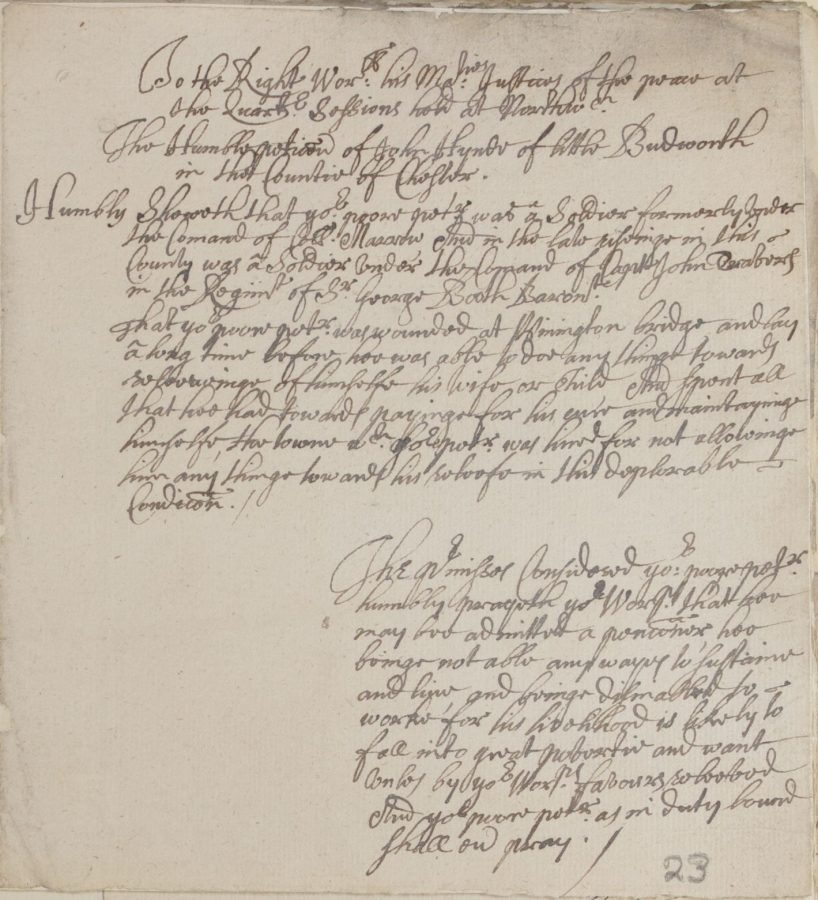 To the Right Wor:ll his Ma:ties Justices of the peace at
the Quart:r Sessions held at Northw:ch
The Humble peticon of John Hynde of little Budworth
in the Countie of Chester.
Humbly Sheweth that yo:r poore pet:r was a Soldier formerly under
the Comand of Coll: Marrow And in the late riseinge in this
County was a Soldier under the Comand of Capt: John
in the Regim:t of S:r George Booth Baron:t
That yo:r poore pet:r was wounded at Winington bridge and lay
a long time before hee was able to doe any thinge towards
releeveinge of himselfe his wife or Child And spent all
that hee had towards payinge for his cure and maintayninge
himselfe the towne w:ch yo:r pet:r was hired for not allowinge
him any thinge towards his releefe in this deplorable
Condicon. /
The p:rmisses Considered yo:r poore pet:r
humbly prayeth yo:r Wor:ps that hee
may bee admitted a pencõner hee
beinge not able any wayes to sustaine
and live, and beinge dismabled to
worke for his livelihood is likely to
fall into great povertie and want
unles by yo:r Wor:ps favours releeved
And yo:r poore pet:r as in duty bound
shall ev:r pray. /
23